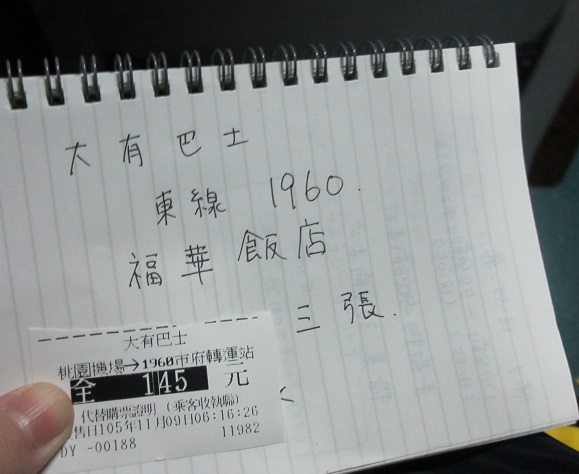 大有巴士
東線 1960.
福華飯店
三張.
大有巴士
桃園機場→1960市府轉運站
全 145 元
代替購票證明(乘客收執聯)
售日105年11月09日06:16:26
DY -00188 11982